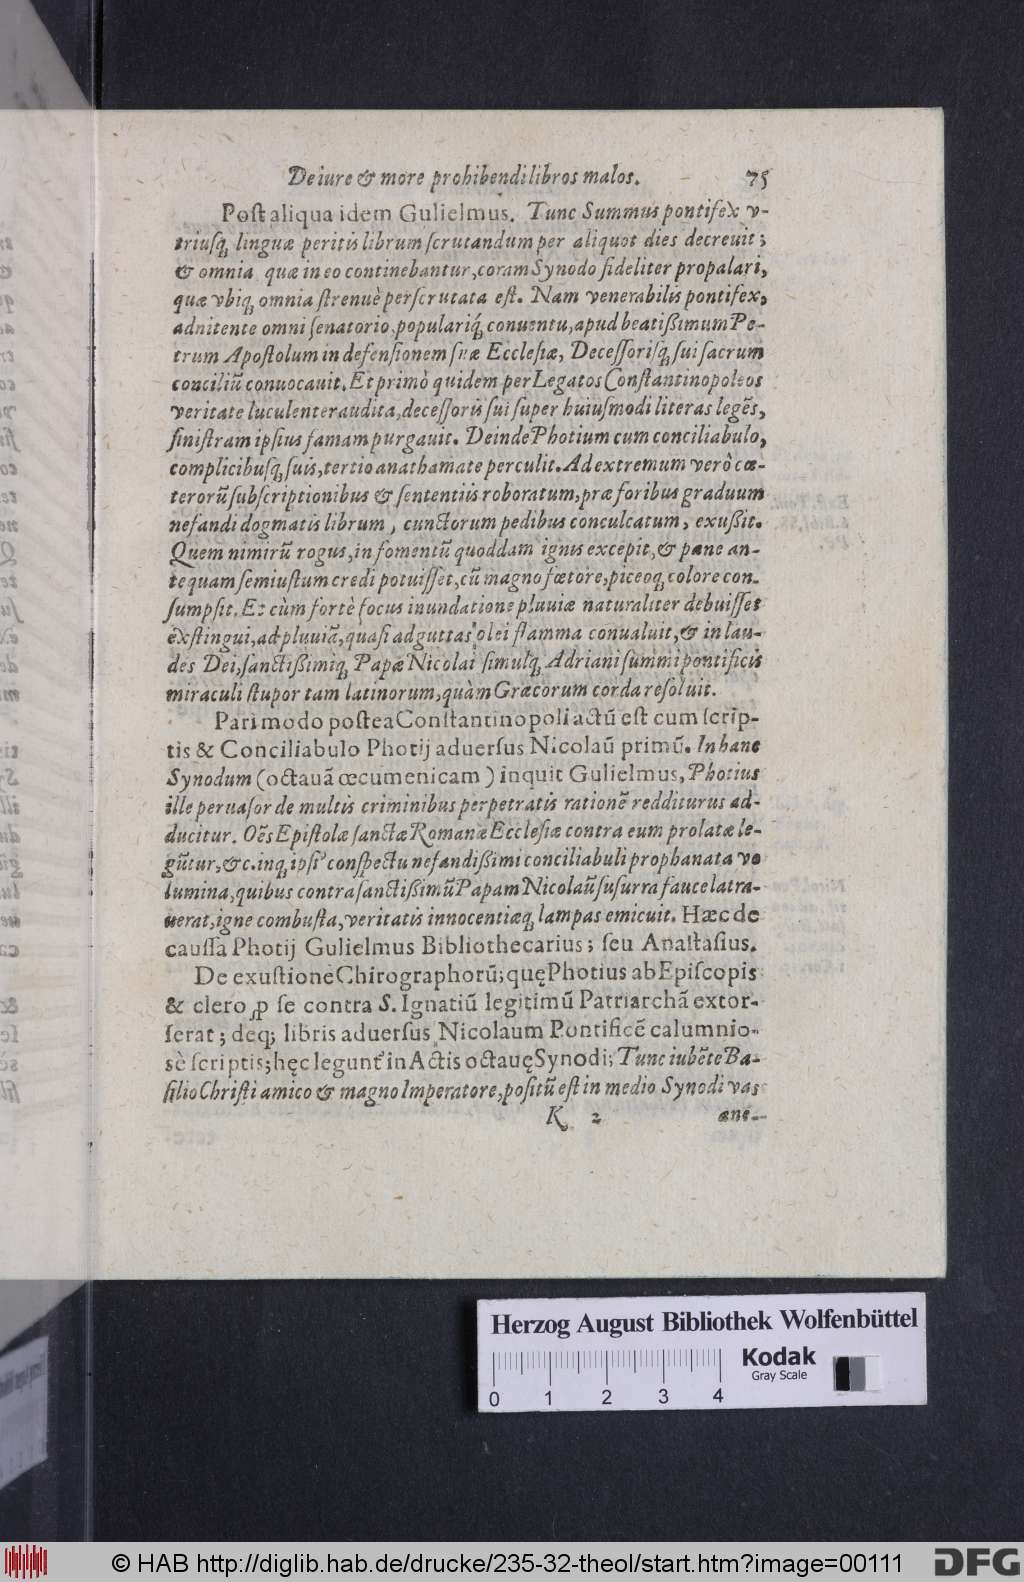 De iure & more prohibendi libros malos. 75
Post aliqua idem Gulielmus. Tunc Summus pontifex v-
triusq́ linguæ peritis librum scrutandum per aliquot dies decreuit;
& omnia quæ in eo continebantur, coram Synodo fideliter propalari,
quæ vbiq́ omnia strenuè perscrutata est. Nam venerabilis pontifex,
adnitente omni senatorio, populariq́ conuentu, apud beatißimum Pe-
trum Apostolum in defensionem suæ Ecclesiæ, Decessorisq́ sui sacrum
conciliũ conuocauit. Et primò quidem per Legatos Constantinopoleos
veritate luculenter audita, decessoris sui super huiusmodi literas legẽs,
sinistram ipsius famam purgauit. Deinde Photium cum conciliabulo,
complicibusq́ suis, tertio anathamate perculit. Ad extremum verò cæ-
terorũ subscriptionibus & sententiis roboratum, præ foribus graduum
nefandi dogmatis librum, cunctorum pedibus conculcatum, exußit.
Quem nimirũ rogus, in fomentũ quoddam ignis excepit, & pæne an-
te quam semiustum credi potuisset, cũ magno fœtore, piceoq́ colore con-
sumpsit. Et cùm fortè focus inundatione pluuiæ naturaliter debuisset
exstingui, ad pluuiã, quasi ad guttas olei flamma conualuit, & in lau-
des Dei, sanctißimiq́ Papæ Nicolai simulq́ Adriani summi pontificis
miraculi stupor tam latinorum, quàm Græcorum corda resoluit.
Pari modo postea Constantinopoli actũ est cum scrip-
tis & Conciliabulo Photij aduersus Nicolaũ primũ. In hanc
Synodum (octauã œcumenicam) inquit Gulielmus, Photius
ille peruasor de multis criminibus perpetratis rationẽ redditurus ad-
ducitur. Oẽs Epistolæ sanctæ Romanæ Ecclesiæ contra eum prolatæ le-
gũtur, &c. inq́ ipsiꝰ conspectu nefandißimi conciliabuli prophanata vo
lumina, quibus contra sanctißimũ Papam Nicolaũ susurra fauce latra-
uerat, igne combusta, veritatis innocentiæq́ lampas emicuit. Hæc de
caussa Photij Gulielmus Bibliothecarius; seu Anastasius.
De exustione Chirographorũ; quę Photius ab Episcopis
& clero ꝓ se contra S. Ignatiũ legitimũ Patriarchã extor-
serat; deq; libris aduersus Nicolaum Pontificẽ calumnio-
sè scriptis; hęc leguntᷣ in Actis octauę Synodi; Tunc iubẽte Ba-
silio Christi amico & magno Imperatore, positũ est in medio Synodi vas
K 2 æne-
Herzog August Bibliothek Wolfenbüttel
Kodak
Gray Scale
0 1 2 3 4
© HAB http://diglib.hab.de/drucke/235-32-theol/start.htm?image=00111
DFG